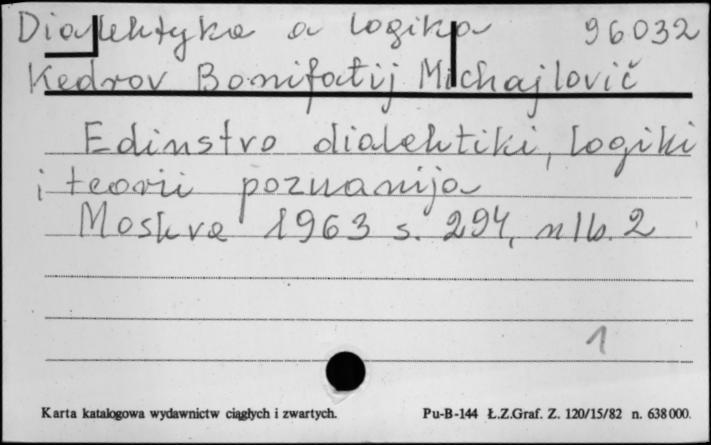 Dialektyka a logika 96032
Kedrov Bonifatij Michajlovič
Edinstvo dialektiki, logiki
i teorii poznanija
Moskva 1963 s. 294, nlb. 2
1
Karta katalogowa wydawnictw ciągłych i zwartych. Pu-B-144 Ł.Z.Graf. Z. 120/15/82 n. 638000.